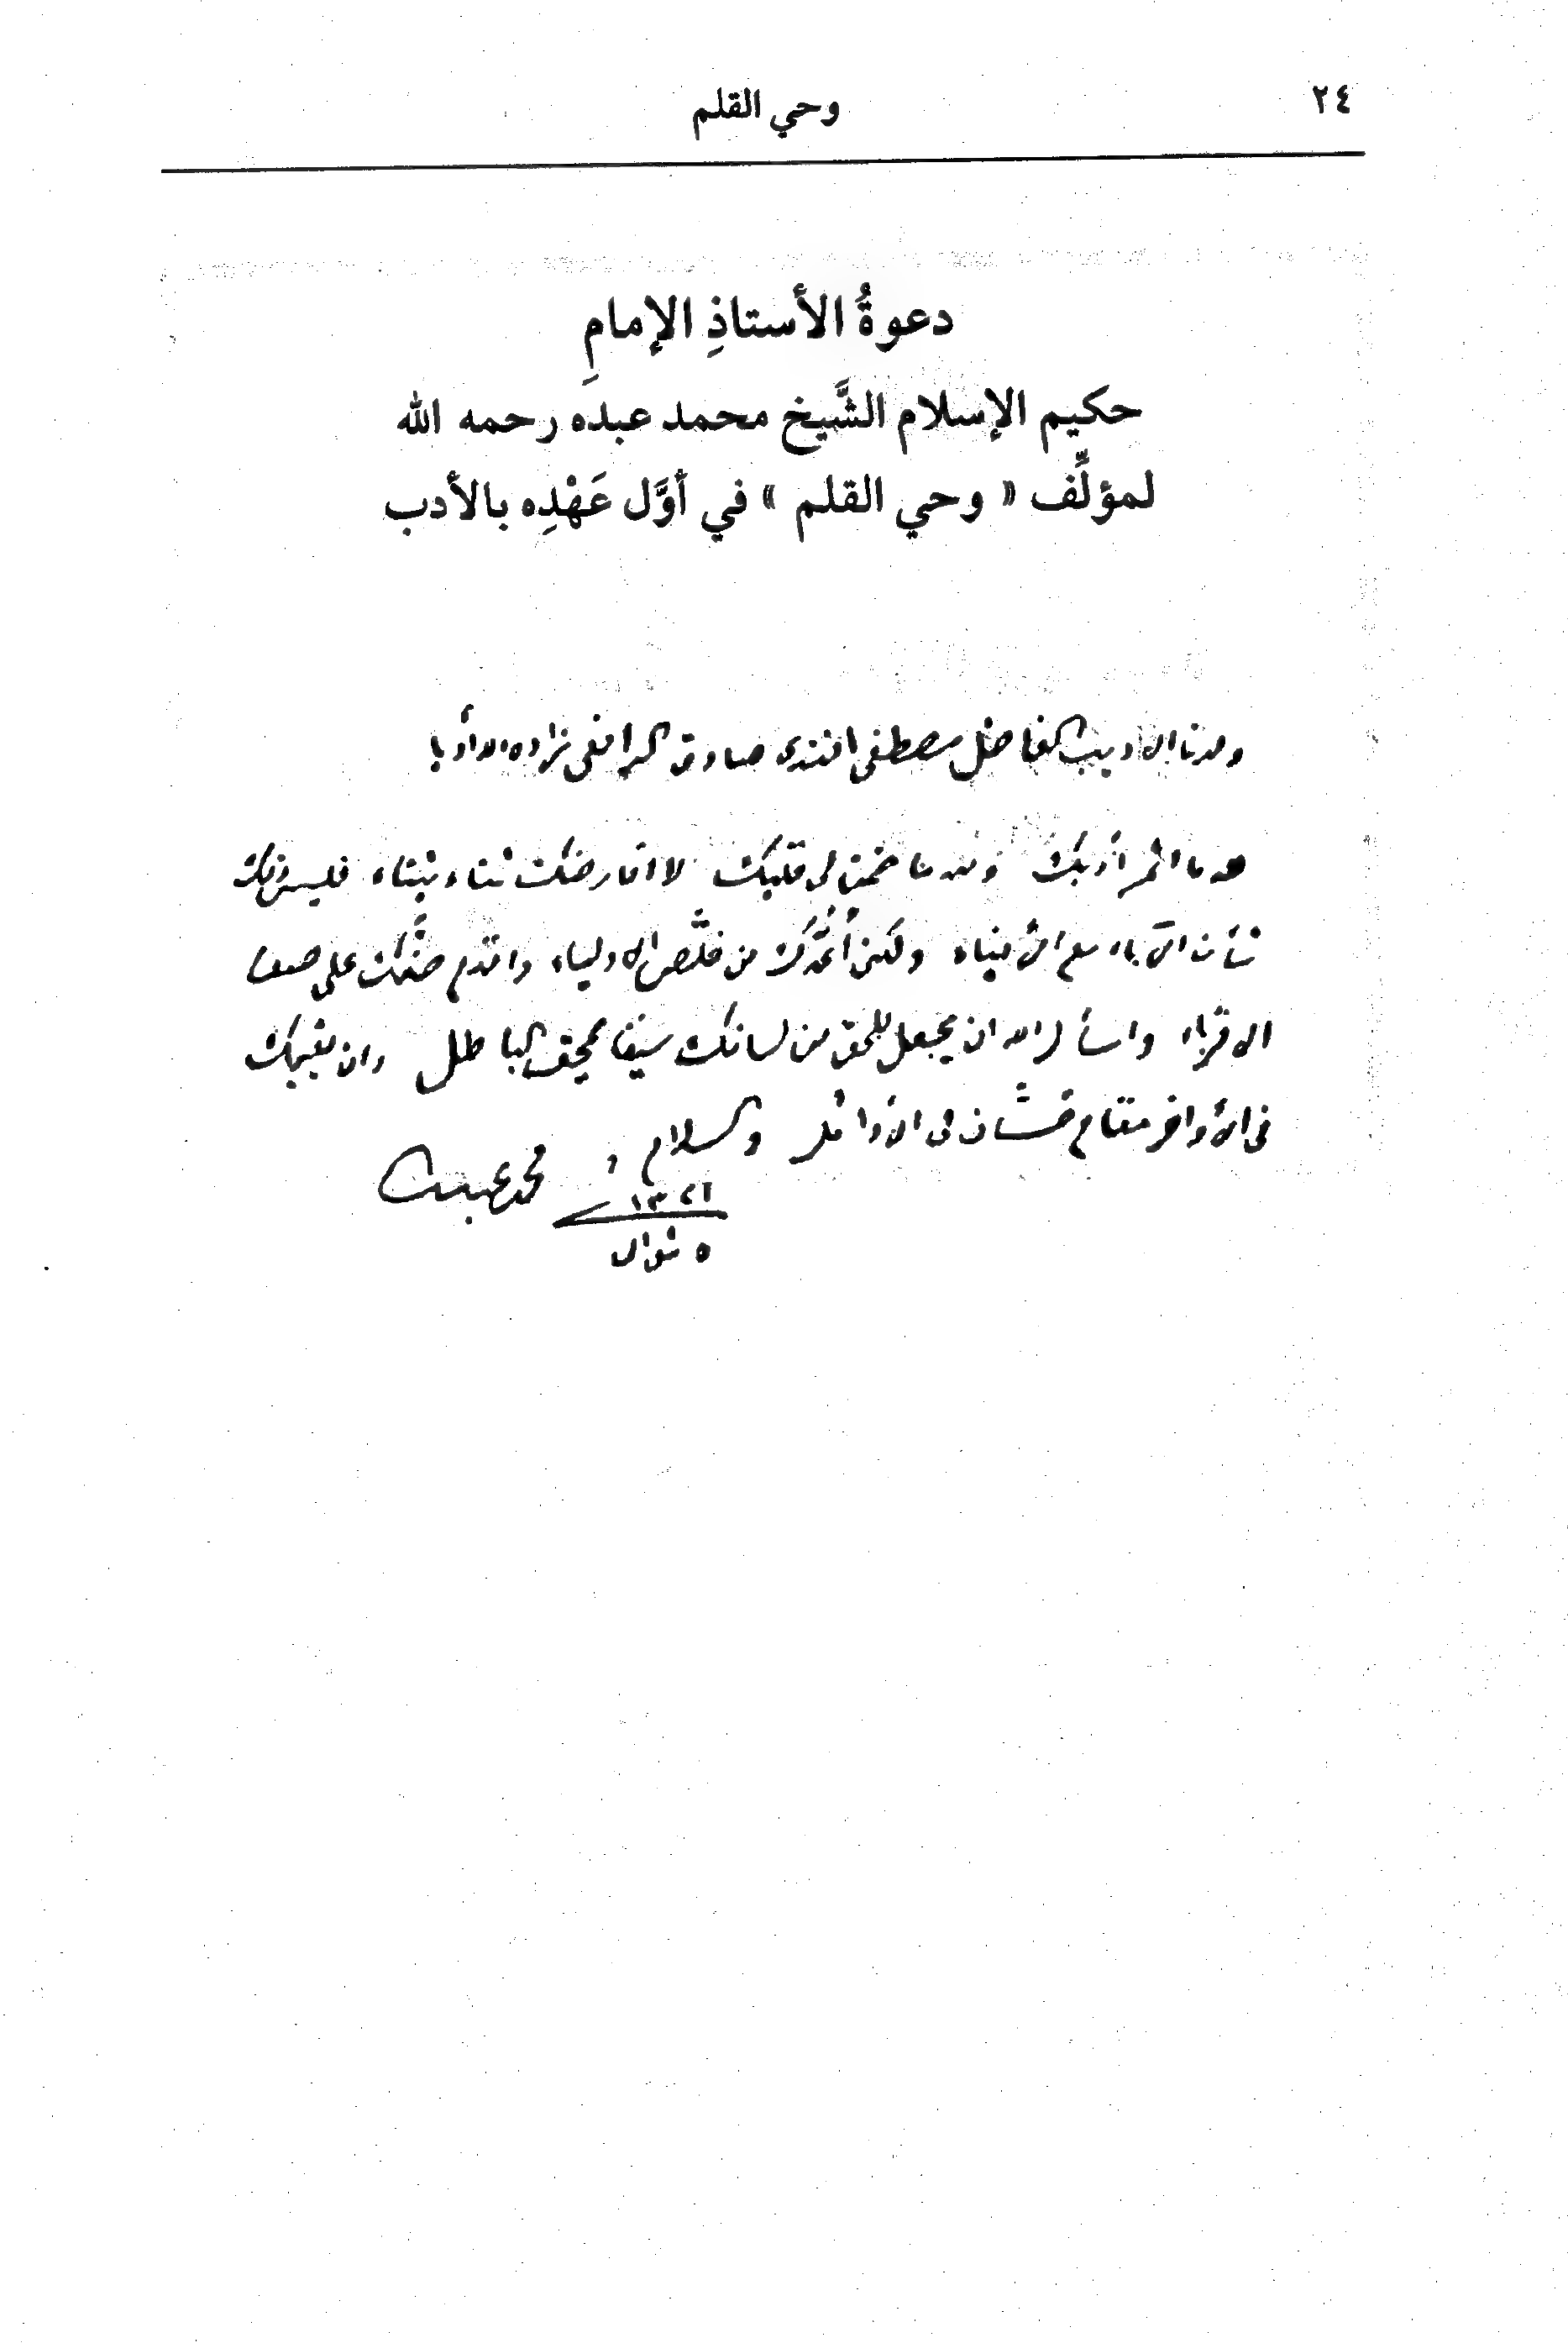 ٢٤
وحي القلم
دعوةُ الأستاذِ الإمامِ
حكيم الإسلام الشَّيخ محمد عبده رحمه الله
لمؤلِّف « وحي القلم » في أوَّل عَهْدِه بالأدب
ولدنا الاديب الفاضل مصطفى افندى صادق الرافعى زاده الله أدبا
لله ما اثمر أدبك ولله ما ضمن لى قلبك لا اقارضك ثناء بثناء فليس ذلك
شأن الآباء مع الأبناء ولكن أعُدُّك من خلَّص الاولياء واقدم صفَّك على صف
الاقرباء واسأل الله ان يجعل للحق من لسانك سيفا يمحق الباطل وان يقيمك
فى الأواخر مقام حسَّان فى الأوائل والسلام
محمد عبده
١٣٢١
٥ شوال